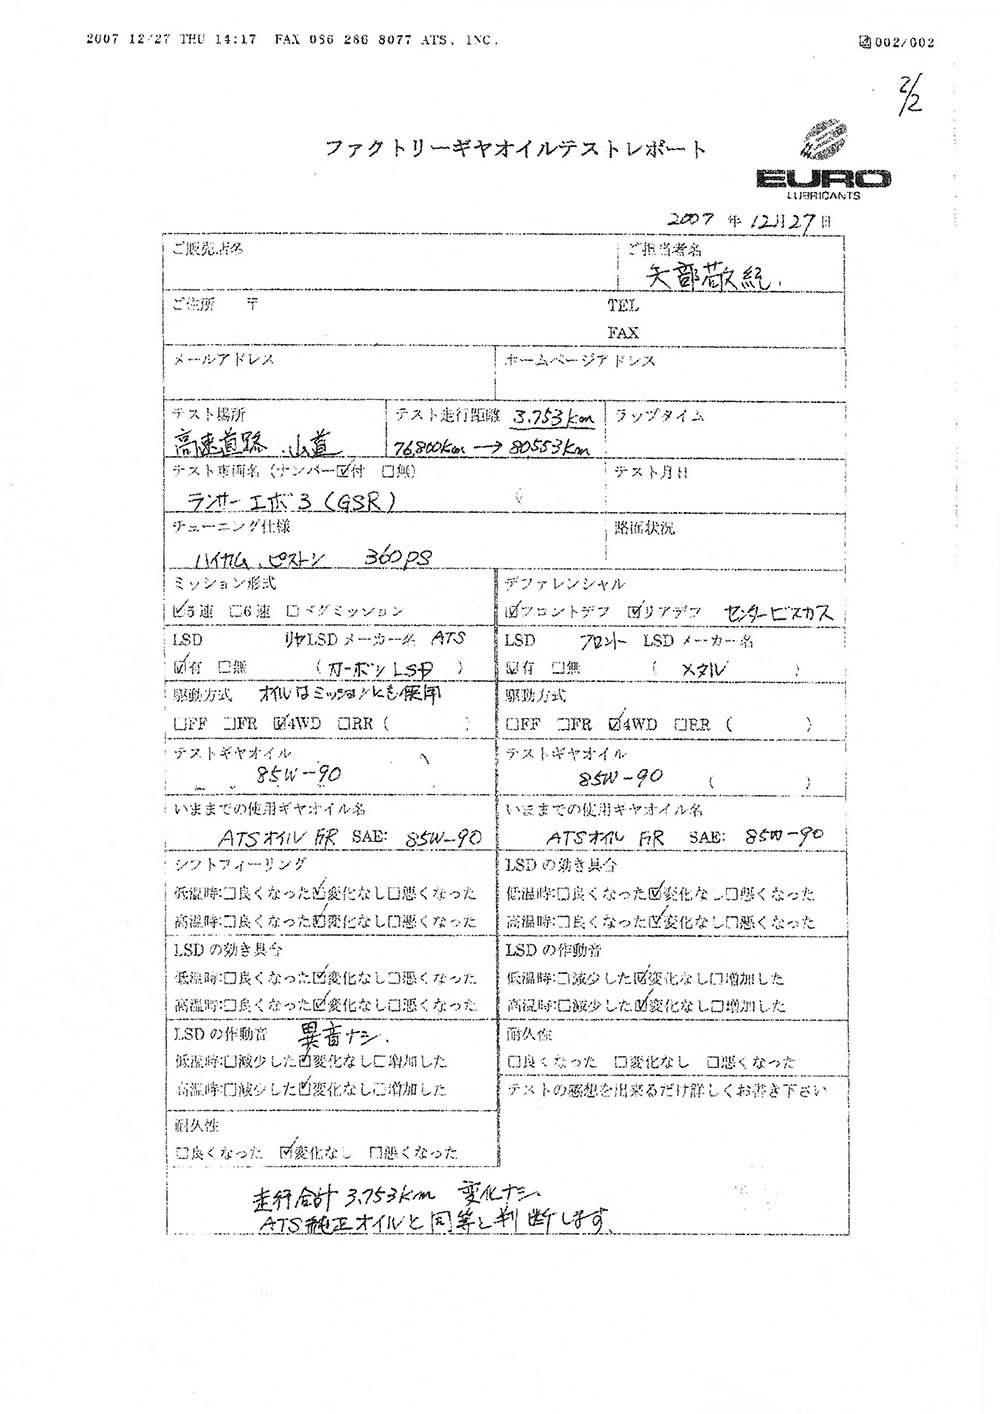 2007 12/27 THU 14:17 FAX 086 286 8077 ATS, INC.
002/002
2/2
ファクトリーギヤオイルテストレポート
EURO
LUBRICANTS
2007 年 12月27日
ご販売店名
ご担当者名
矢部敬紀.
ご住所 〒
TEL
FAX
メールアドレス
ホームページアドレス
テスト場所
高速道路 山道
テスト走行距離 3.753km
76,800km→80553km
ラップタイム
テスト車両名(ナンバー☑付 □無)
ランサーエボ3(GSR)
テスト月日
チューニング仕様
ハイカム、ピストン 360ps
路面状況
ミッション形式
☑5速 □6速 □ドグミッション
デファレンシャル
☑フロントデフ ☑リアデフ センタービスカス
LSD リヤLSDメーカー名 ATS
☑有 □無 (カーボンLSD)
LSD フロント LSDメーカー名
☑有 □無 (メタル)
駆動方式 オイルはミッションにも使用
□FF □FR ☑4WD □RR( )
駆動方式
□FF □FR ☑4WD □RR( )
テストギヤオイル
85W-90
テストギヤオイル
85W-90 ( )
いままでの使用ギヤオイル名
ATSオイル F/R SAE: 85W-90
いままでの使用ギヤオイル名
ATSオイル F/R SAE: 85W-90
シフトフィーリング
低温時:□良くなった☑変化なし□悪くなった
高温時:□良くなった☑変化なし□悪くなった
LSDの効き具合
低温時:□良くなった☑変化なし□悪くなった
高温時:□良くなった☑変化なし□悪くなった
LSDの効き具合
低温時:□良くなった☑変化なし□悪くなった
高温時:□良くなった☑変化なし□悪くなった
LSDの作動音
低温時:□減少した☑変化なし□増加した
高温時:□減少した☑変化なし□増加した
LSDの作動音 異音ナシ.
低温時:□減少した☑変化なし□増加した
高温時:□減少した☑変化なし□増加した
耐久性
□良くなった □変化なし □悪くなった
テストの感想を出来るだけ詳しくお書き下さい
耐久性
□良くなった ☑変化なし □悪くなった
走行合計 3.753km 変化ナシ.
ATS純正オイルと同等と判断します.